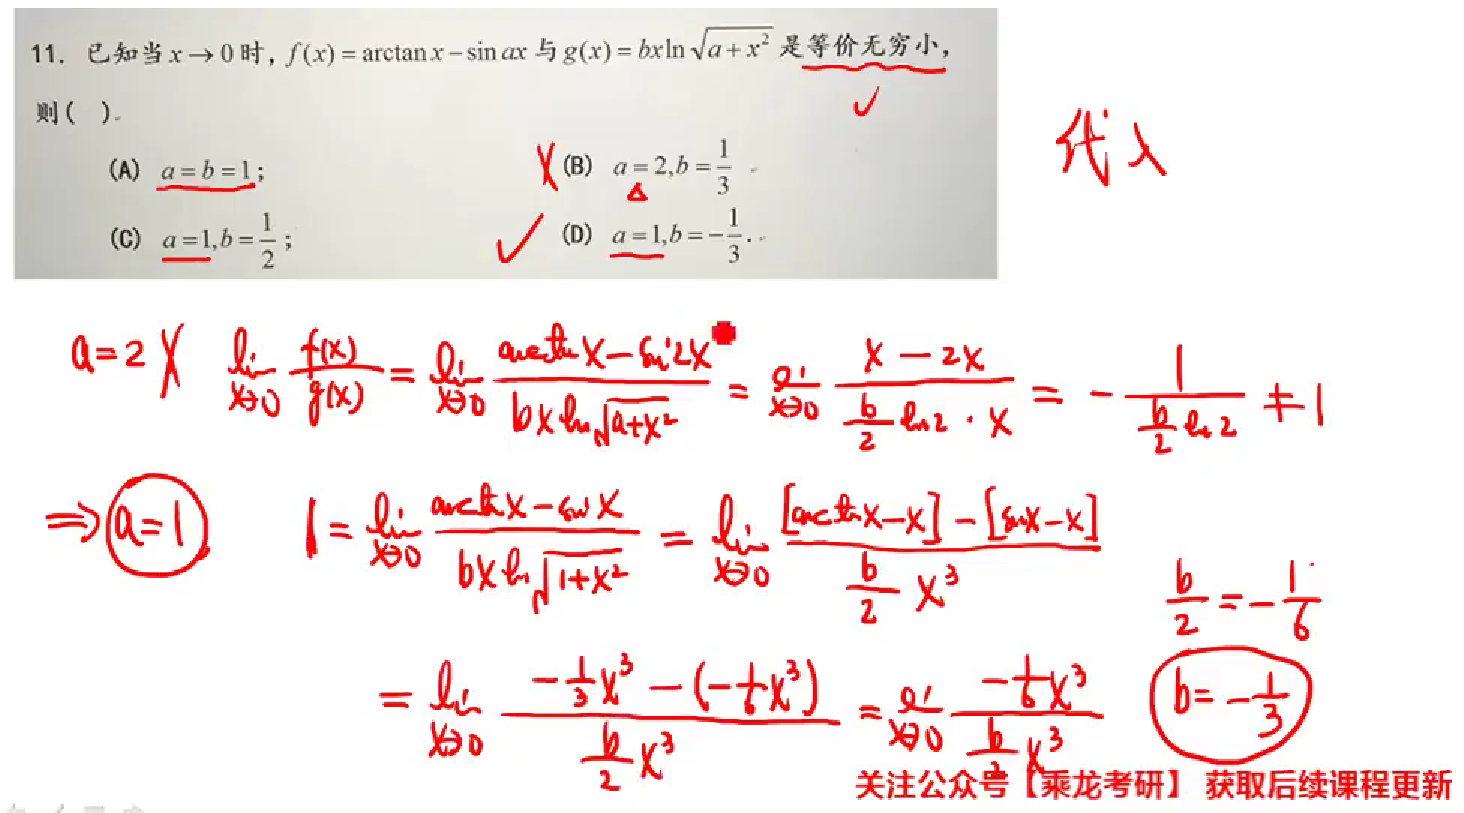 11. 已知当 x → 0 时, f(x) = arctan x − sin ax 与 g(x) = bx ln √(a + x²) 是等价无穷小,
则 ( ).
(A) a = b = 1; (B) a = 2, b = 1/3
(C) a = 1, b = 1/2; (D) a = 1, b = −1/3.
代入
a=2 X lim x→0 f(x)/g(x) = lim x→0 (arctan x − sin 2x)/(bx ln √(a+x²)) = lim x→0 (x − 2x)/(b/2 ln2 · x) = − 1/(b/2 ln 2) ≠ 1
⇒ a=1 1 = lim x→0 (arctan x − sin x)/(bx ln √(1+x²)) = lim x→0 ([arctan x − x] − [sin x − x])/(b/2 x³)
b/2 = −1/6
= lim x→0 (−1/3 x³ − (−1/6 x³))/(b/2 x³) = lim x→0 (−1/6 x³)/(b/2 x³) b = −1/3
关注公众号【乘龙考研】 获取后续课程更新